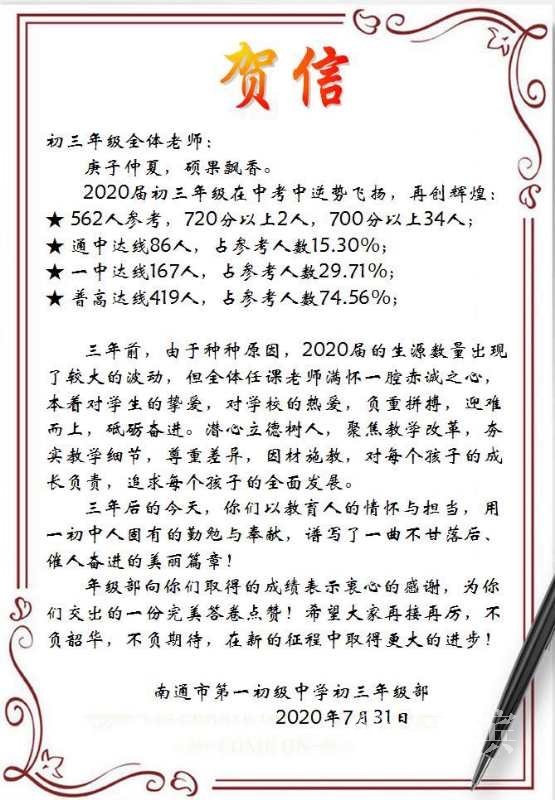 贺信
初三年级全体老师：
庚子仲夏，硕果飘香。
2020届初三年级在中考中逆势飞扬，再创辉煌：
★ 562人参考，720分以上2人，700分以上34人；
★ 通中达线86人，占参考人数15.30%；
★ 一中达线167人，占参考人数29.71%；
★ 普高达线419人，占参考人数74.56%；
三年前，由于种种原因，2020届的生源数量出现
了较大的波动，但全体任课老师满怀一腔赤诚之心，
本着对学生的挚爱，对学校的热爱，负重拼搏，迎难
而上，砥砺奋进。潜心立德树人，聚焦教学改革，夯
实教学细节，尊重差异，因材施教，对每个孩子的成
长负责，追求每个孩子的全面发展。
三年后的今天，你们以教育人的情怀与担当，用
一初中人固有的勤勉与奉献，谱写了一曲不甘落后、
催人奋进的美丽篇章！
年级部向你们取得的成绩表示衷心的感谢，为你
们交出的一份完美答卷点赞！希望大家再接再厉，不
负韶华，不负期待，在新的征程中取得更大的进步！
南通市第一初级中学初三年级部
2020年7月31日